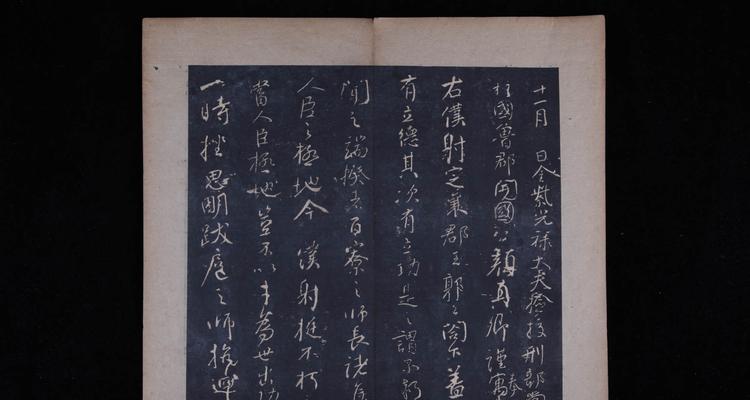 十一月 日金紫光禄大夫檢校刑部尚
柱國魯郡開國公顏真卿謹奉寓
右僕射定襄郡王郭公閤下蓋
有立德其次有立功是之謂不朽
聞之端揆者百寮之師長諸侯
人臣之極地今僕射挺不朽
當人臣極地豈不以才為世出功
一時挫思明跋扈之師抗迴